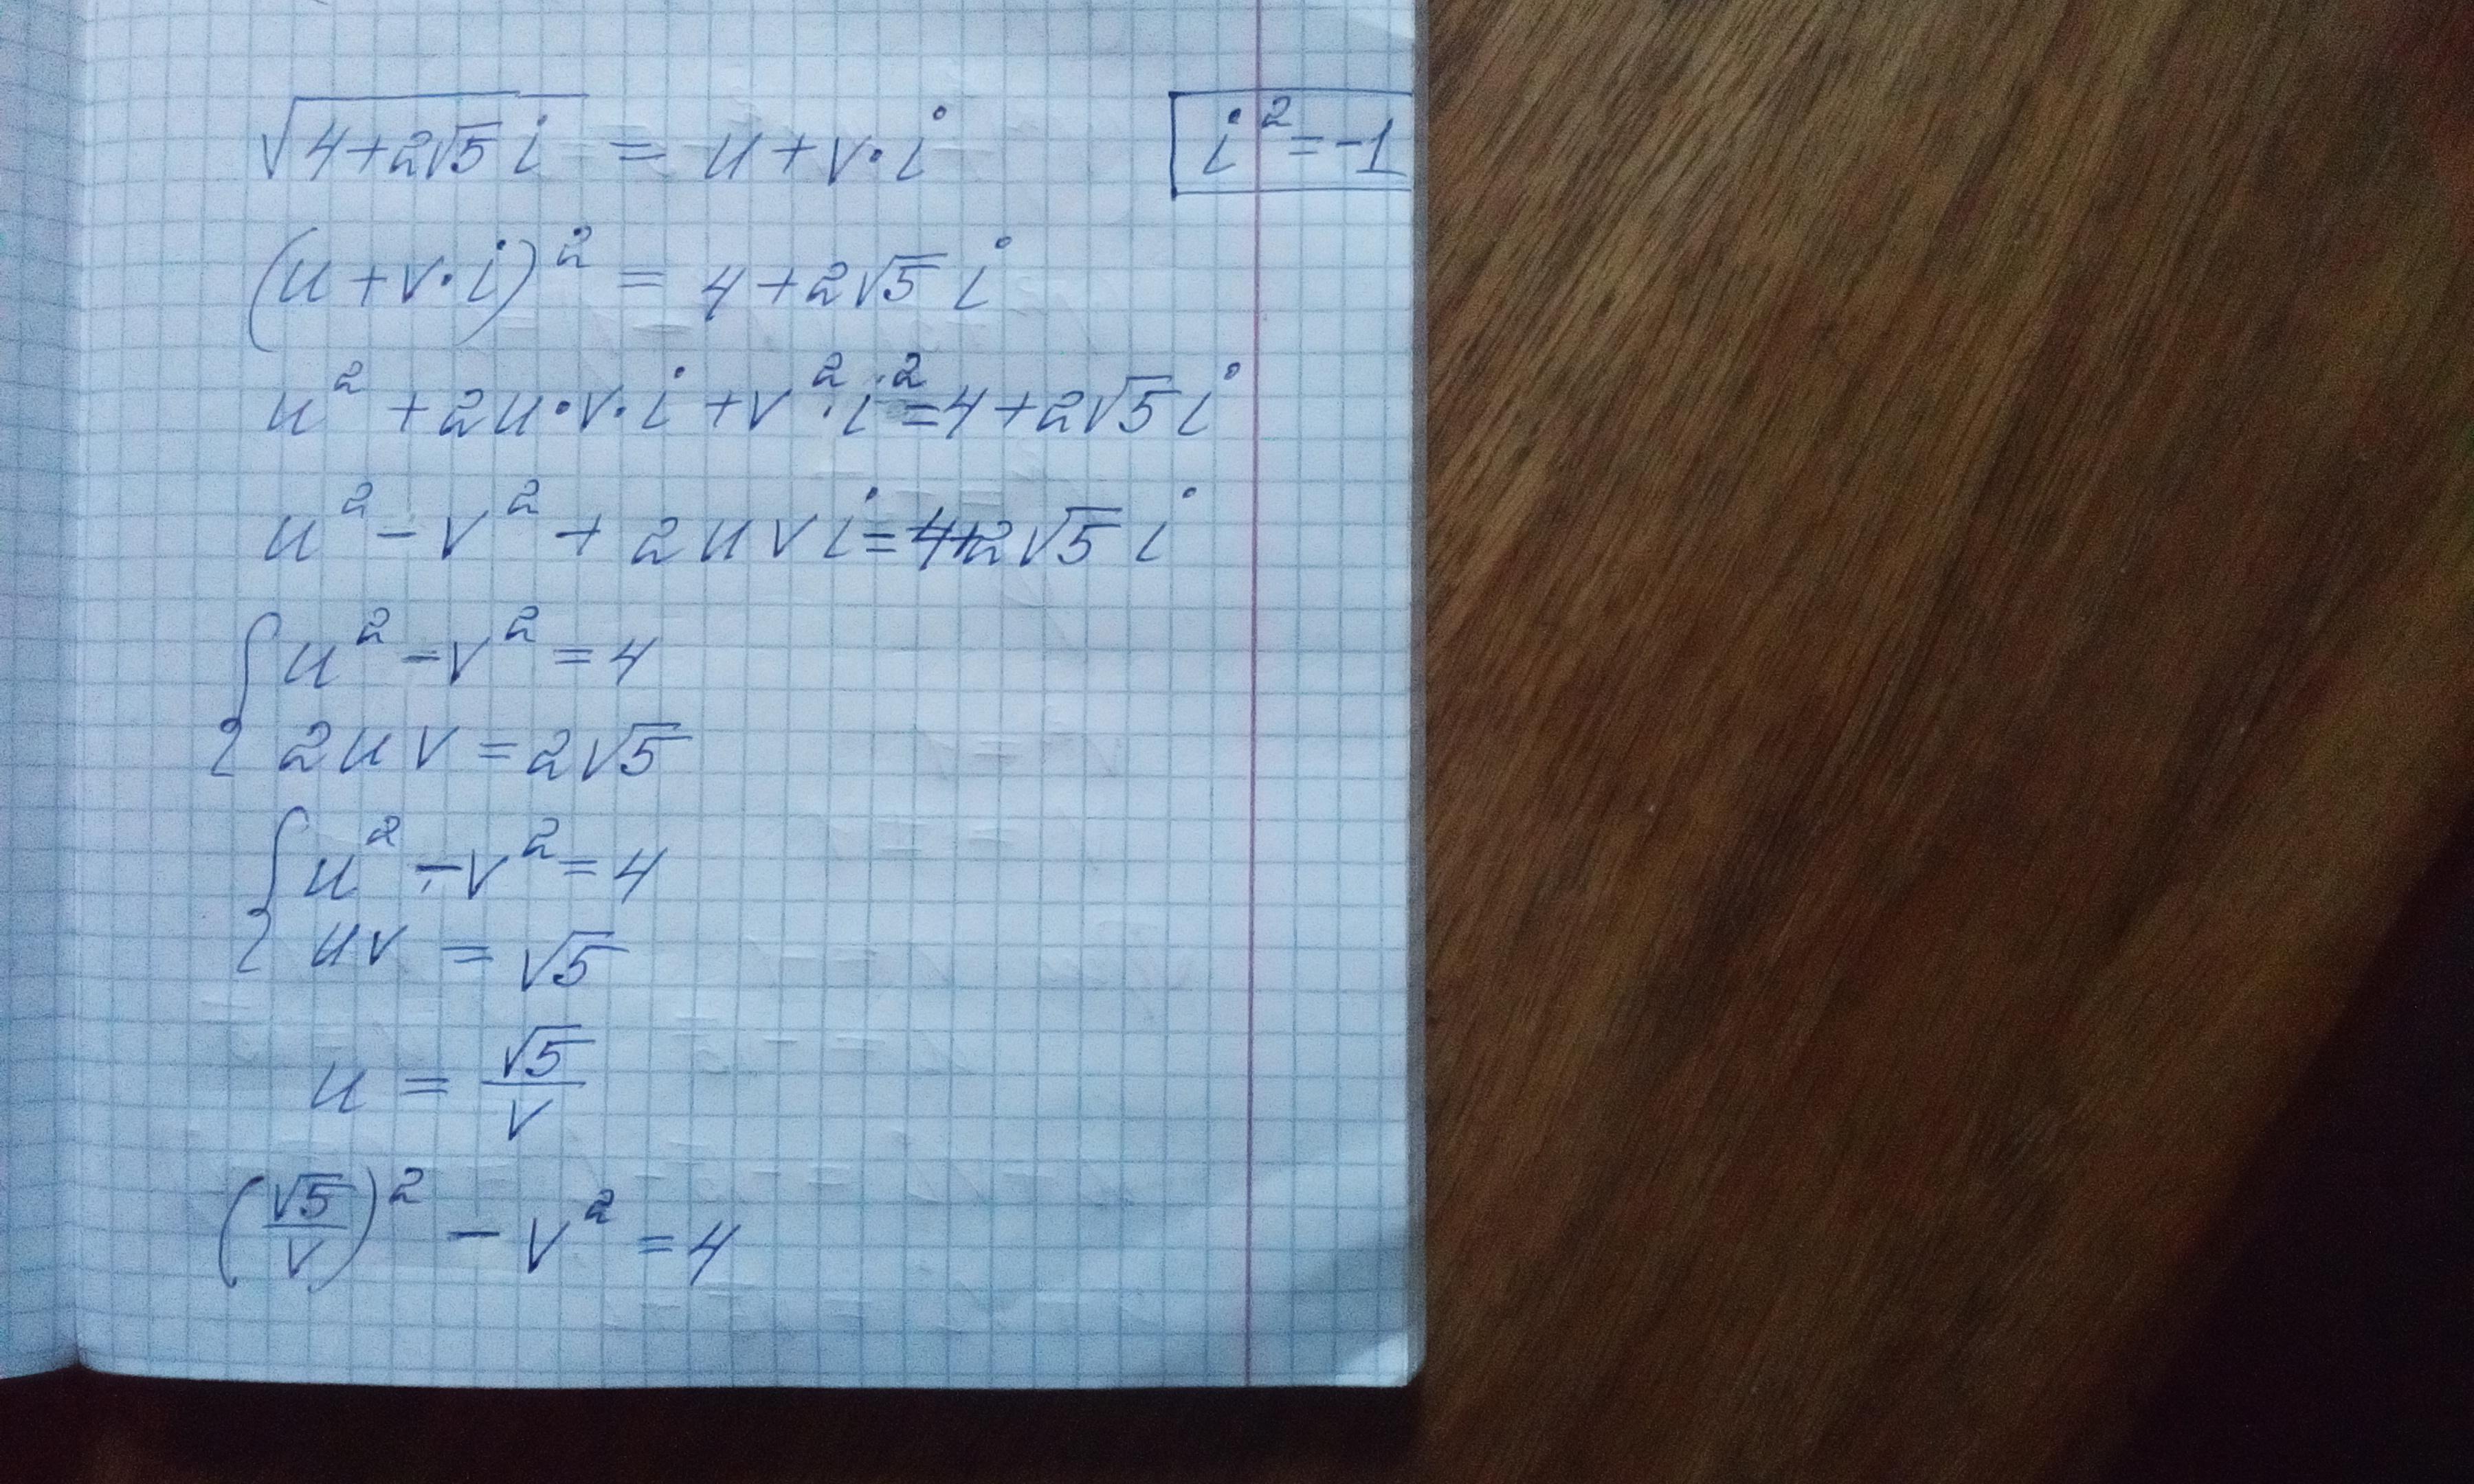 √(4+2√5 i) = u+v·i
i²=-1
(u+v·i)² = 4+2√5 i
u²+2u·v·i+v²·i²=4+2√5 i
u²-v²+2uvi=4+2√5 i
{u²-v²=4
2uv=2√5
{u²-v²=4
uv=√5
u = √5/v
(√5/v)² - v² = 4